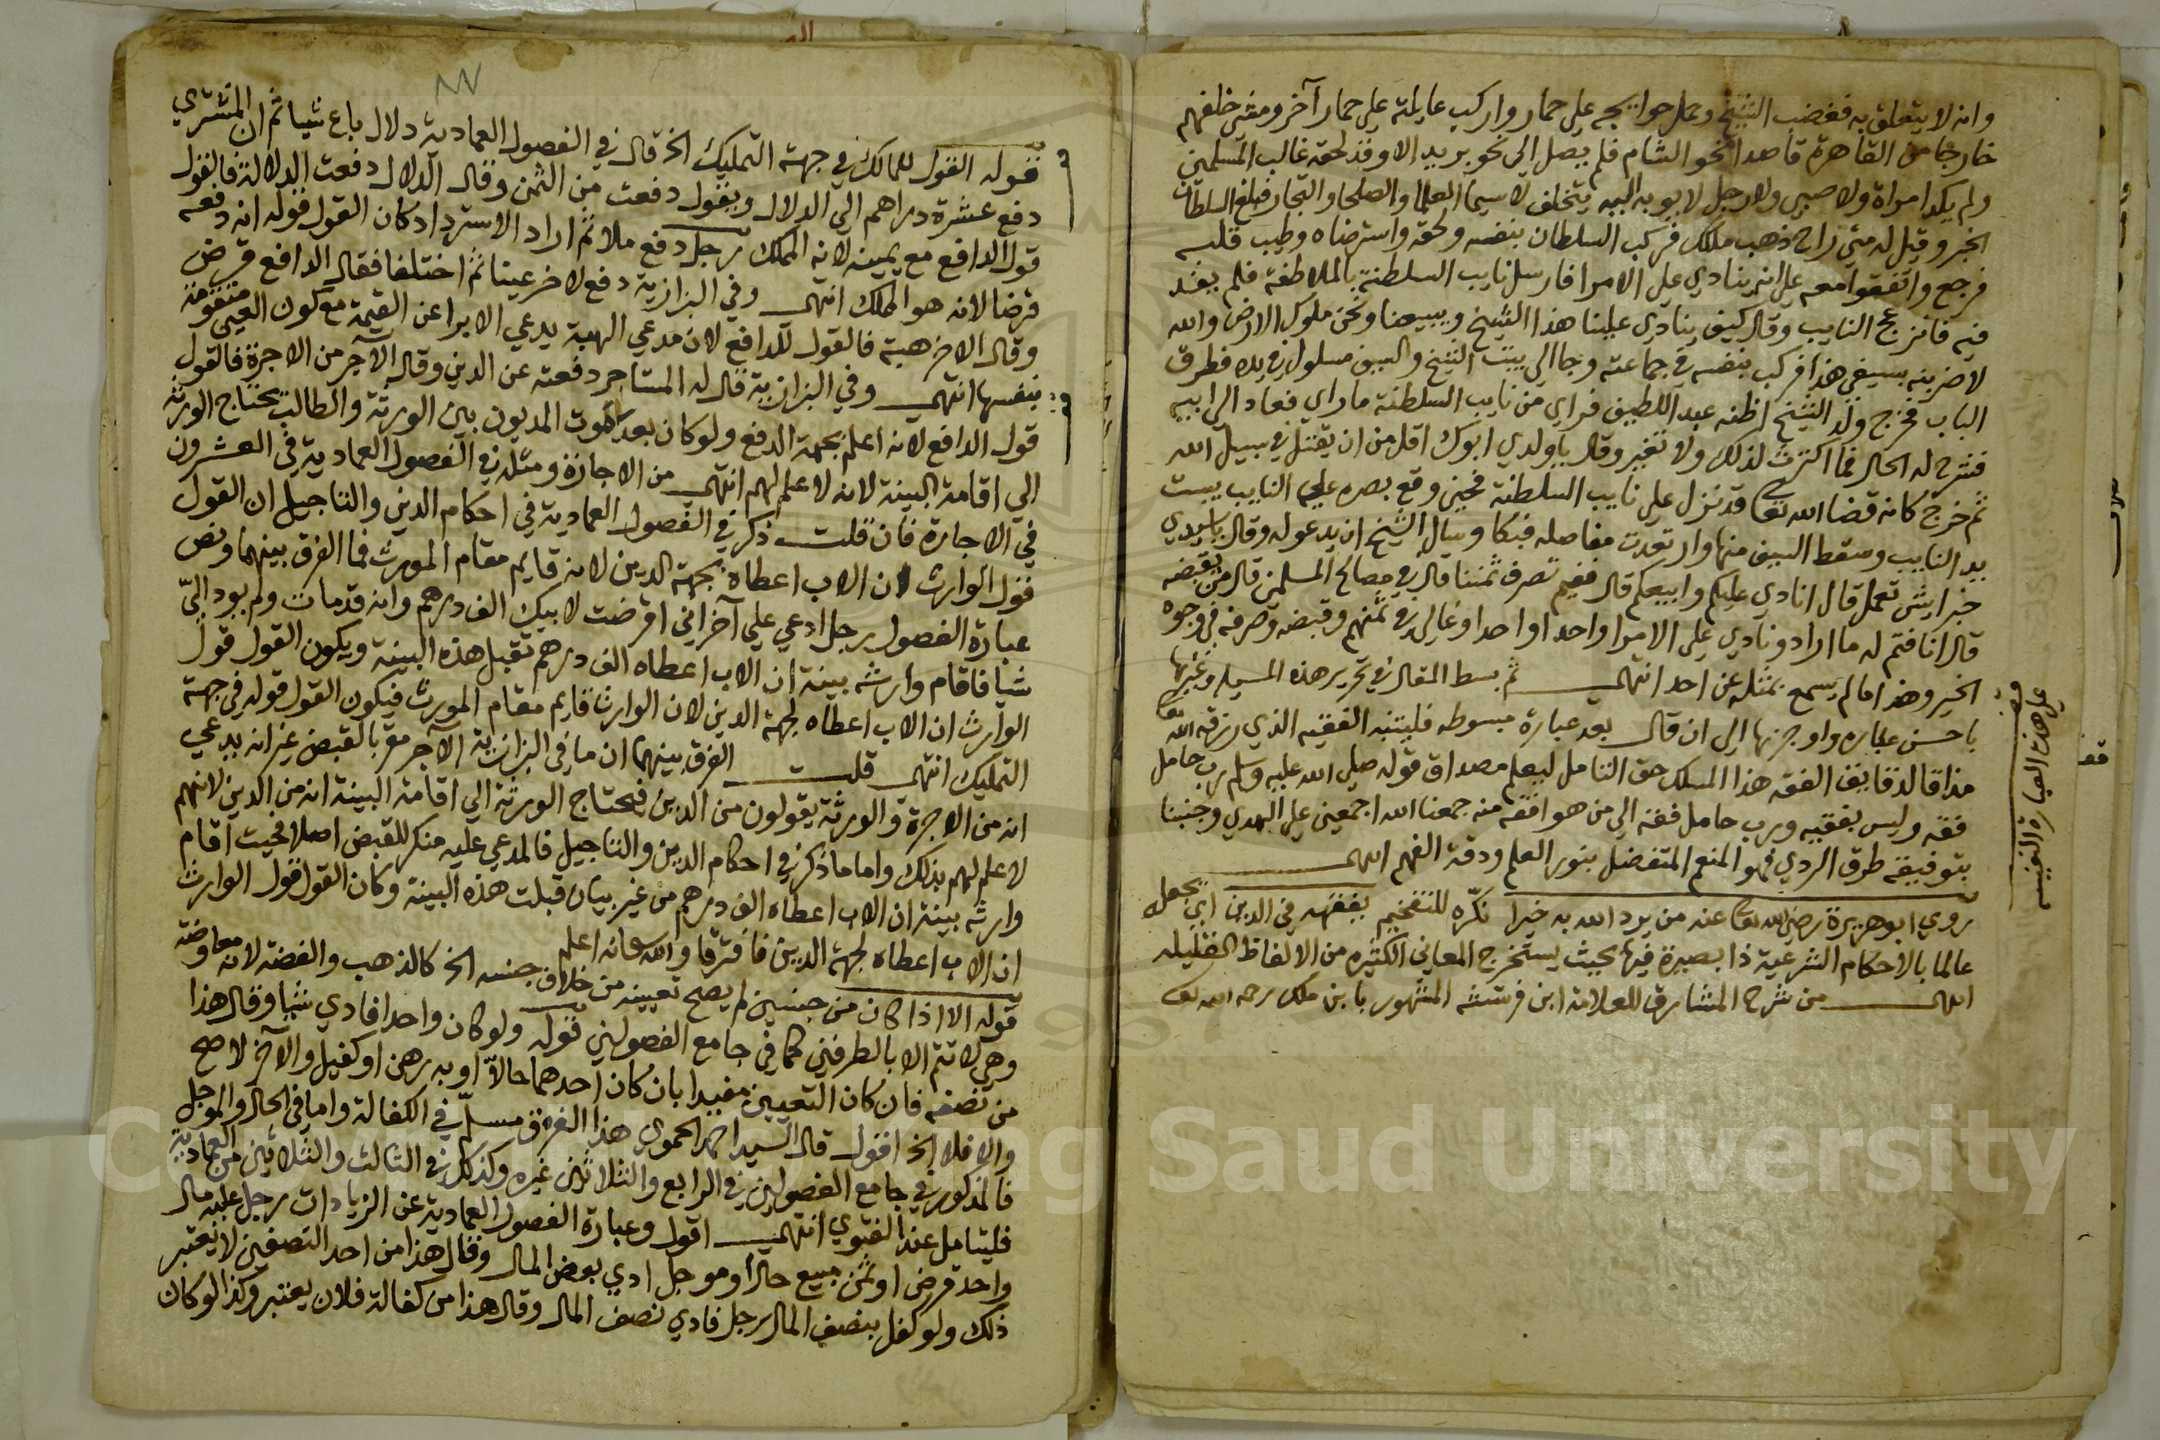 وانه لا يتعلق به فغضب الشيخ وحمل حوايجه على حمار واركب عايلته على حمار آخر ومشى خلفهم
خارجا من القاهرة قاصدا نحو الشام فلم يصل الى نحو بريد الا وقد لحقه غالب المسلمين
ولم يكد امراة ولا صبي ولا رجل لا يوبه اليه يتخلف لا سيما العلما والصلحا والتجار فبلغ السلطان
الخبر وقيل له متى راح ذهب ملكك فركب السلطان بنفسه ولحقه واسترضاه وطيب قلبه
فرجع واتفقوا معه على انه ينادي على الامرا فارسل نايب السلطنة بالملاطفة فلم يفد
فيه فانزعج النايب وقال كيف ينادي علينا هذا الشيخ ويبيعنا ونحن ملوك الارض والله
لاضربنه بسيفي هذا فركب بنفسه في جماعته وجا الى بيت الشيخ والسيف مسلول في يده فطرق
الباب فخرج ولد الشيخ اظنه عبد اللطيف فراي من نايب السلطنة ما راي فعاد الى ابيه
فشرح له الحال فما اكترث لذلك ولا تغير وقال ياولدي ابوك اقل من ان يقتل في سبيل الله
ثم خرج كانه قضا الله تعا قد نزل على نايب السلطنة فحين وقع بصره على النايب يبست
يد النايب وسقط السيف منها وارتعدت مفاصله فبكا وسال الشيخ ان يدعو له وقال ياسيدي
خبر ايش تعمل قال انادي عليكم وابيعكم قال ففيم تصرف ثمننا قال في مصالح المسلمين قال من يقبضه
قال انا فتم له ما اراد ونادي على الامرا واحدا واحدا وغالى في ثمنهم وقبضه وصرفه في وجوه
الخير وهذا ما لم يسمع بمثله عن احد انتهى ثم بسط المقال في تحرير هذه المسيله وغيرها
باحسن عباره واوجزها الى ان قال بعد عبارة مبسوطه فليتنبه الفقيه الذي رزقه الله تعا
مذاقا لدقايق الفقه هذا المسلك حق التامل ليعلم مصداق قوله صلى الله عليه وسلم رب حامل
فقه وليس بفقيه ورب حامل فقه الى من هو افقه منه جمعنا الله اجمعين على الهدي وجنبنا
بتوفيقه طرق الردي فهو المنعم المتفضل بنور العلم ودقة الفهم انتهى
روي ابو هريرة رضي الله تعا عنه من يرد الله به خيرا نكّره للتفخيم يفقهه في الدين اي يجعله
عالما بالاحكام الشرعية ذا بصيرة فيها بحيث يستخرج المعاني الكثيره من الالفاظ القليله
انتهى من شرح المشارق للعلامة ابن فرشته المشهور بابن ملك رحمه الله تعا
قف
على هذه العبارة النفيسه
قوله القول للمالك في جهة التمليك الخ قال في الفصول العمادية دلال باع شيا ثم ان المشتري
دفع عشرة دراهم الى الدلال ويقول دفعت من الثمن وقال الدلال دفعت الدلالة فالقول
قول الدافع مع يمينه لانه المملك رجل دفع مالا ثم اراد الاسترداد كان القول قوله انه دفعه
قرضا لانه هو المملك انتهى وفي البزازية دفع لاخر عينا ثم اختلفا فقال الدافع قرض
وقال الاخر هبة فالقول للدافع لان مدعي الهبة يدعي الابرا عن القيمة مع كون العين متقومة
بنفسها انتهى وفي البزازية قال له المستاجر دفعته عن الدين وقال الآجر من الاجرة فالقول
قول الدافع لانه اعلم بجهة الدفع ولو كان بعد موت المديون بين الورثة والطالب يحتاج الورثة
الى اقامة البينة لانه لا علم لهم انتهى من الاجازة ومثله في الفصول العمادية في العشرون
في الاجارة فان قلت ذكر في الفصول العمادية في احكام الدين والتاجيل ان القول
قول الوارث ان الاب اعطاه بجهة الدين لانه قايم مقام المورث فما الفرق بينهما ونص
عبارة الفصول رجل ادعي على آخر اني اقرضت لابيك الف درهم وانه قد مات ولم يود اليّ
شيا فاقام وارثه بينة ان الاب اعطاه الف درهم تقبل هذه البينة ويكون القول قول
الوارث ان الاب اعطاه لجهة الدين لان الوارث قايم مقام المورث فيكون القول قوله في جهة
التمليك انتهى قلت الفرق بينهما ان ما في البزازية الآجر مقر بالقبض غير انه يدعي
انه من الاجرة والورثة يقولون من الدين فيحتاج الورثة الى اقامة البينة انه من الدين لانهم
لا علم لهم بذلك واما ما ذكر في احكام الدين والتاجيل فالمدعي عليه منكر للقبض اصلا فحيث اقام
وارثه بينة ان الاب اعطاه الف درهم من غير بيان قبلت هذه البينة وكان القول قول الوارث
ان الاب اعطاه لجهة الدين فافترقا والله سبحانه اعلم
قوله الا اذا كان من جنسين لم يصح تعيينه من خلاف جنسه الخ كالذهب والفضة لانه معاوضة
وهي لا تتم الا بالطرفين كما في جامع الفصولين قوله ولو كان واحدا فادي شيا وقال هذا
من نصفه فان كان التعيين مفيدا بان كان احدهما حالاّ او به رهن او كفيل والآخر لا صح
والا فلا الخ اقول قال السيد احمد الحموي هذا الفرق مسلم في الكفالة واما في الحال والموجل
فالمذكور في جامع الفصولين في الرابع والثلاثين غيره وكذلك في الثالث والثلاثين من العمادية
فليتامل عند الفتوي انتهى اقول وعبارة الفصول العمادية عن الزيادات رجل عليه مال
واحد قرض او ثمن مبيع حالا او موجل ادي بعض المال وقال هذا من احد النصفين لا يعتبر
ذلك ولو كفل بنصف المال رجل فادي نصف المال وقال هذا من كفالة فلان يعتبر وكذا لو كان
Saud University